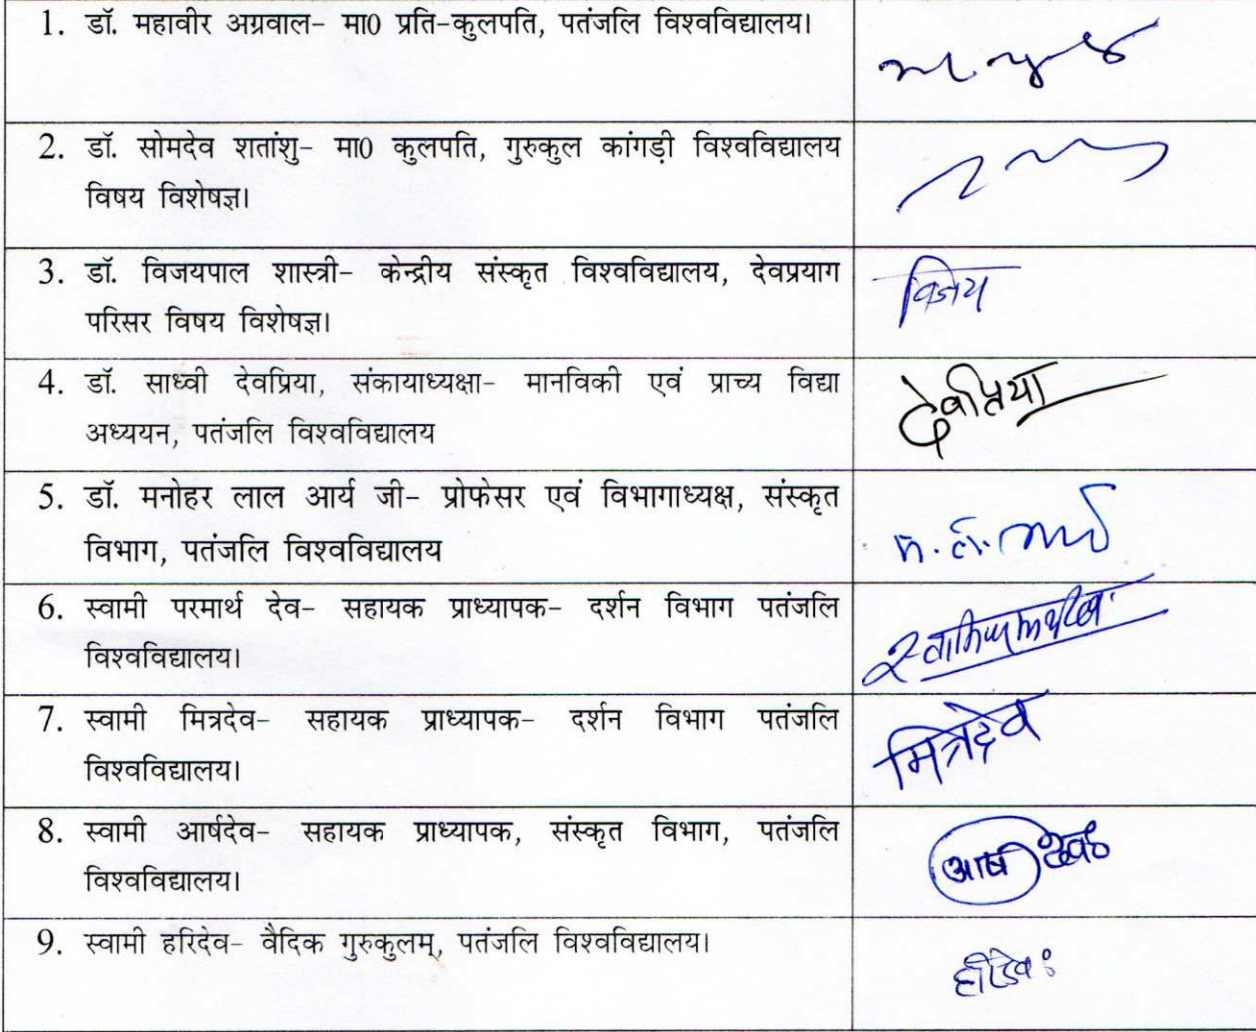 1. डॉ. महावीर अग्रवाल- मा0 प्रति-कुलपति, पतंजलि विश्वविद्यालय।
2. डॉ. सोमदेव शतांशु- मा0 कुलपति, गुरुकुल कांगड़ी विश्वविद्यालय
विषय विशेषज्ञ।
3. डॉ. विजयपाल शास्त्री- केन्द्रीय संस्कृत विश्वविद्यालय, देवप्रयाग
विजय
परिसर विषय विशेषज्ञ।
4. डॉ. साध्वी देवप्रिया, संकायाध्यक्षा- मानविकी एवं प्राच्य विद्या
देवप्रिया
अध्ययन, पतंजलि विश्वविद्यालय
5. डॉ. मनोहर लाल आर्य जी- प्रोफेसर एवं विभागाध्यक्ष, संस्कृत
विभाग, पतंजलि विश्वविद्यालय
म. ला. आर्य
6. स्वामी परमार्थ देव- सहायक प्राध्यापक- दर्शन विभाग पतंजलि
विश्वविद्यालय।
7. स्वामी मित्रदेव- सहायक प्राध्यापक- दर्शन विभाग पतंजलि
मित्रदेव
विश्वविद्यालय।
8. स्वामी आर्षदेव- सहायक प्राध्यापक, संस्कृत विभाग, पतंजलि
आर्ष देवः
विश्वविद्यालय।
9. स्वामी हरिदेव- वैदिक गुरुकुलम्, पतंजलि विश्वविद्यालय।
हरिदेवः